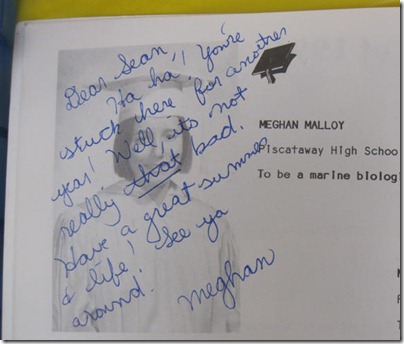 Dear Sean,
Ha ha! You're
stuck here for another
year! Well, its not
really that bad.
Have a great summer
& life! See ya
around.
Meghan
MEGHAN MALLOY
Piscataway High Schoo
To be a marine biolog